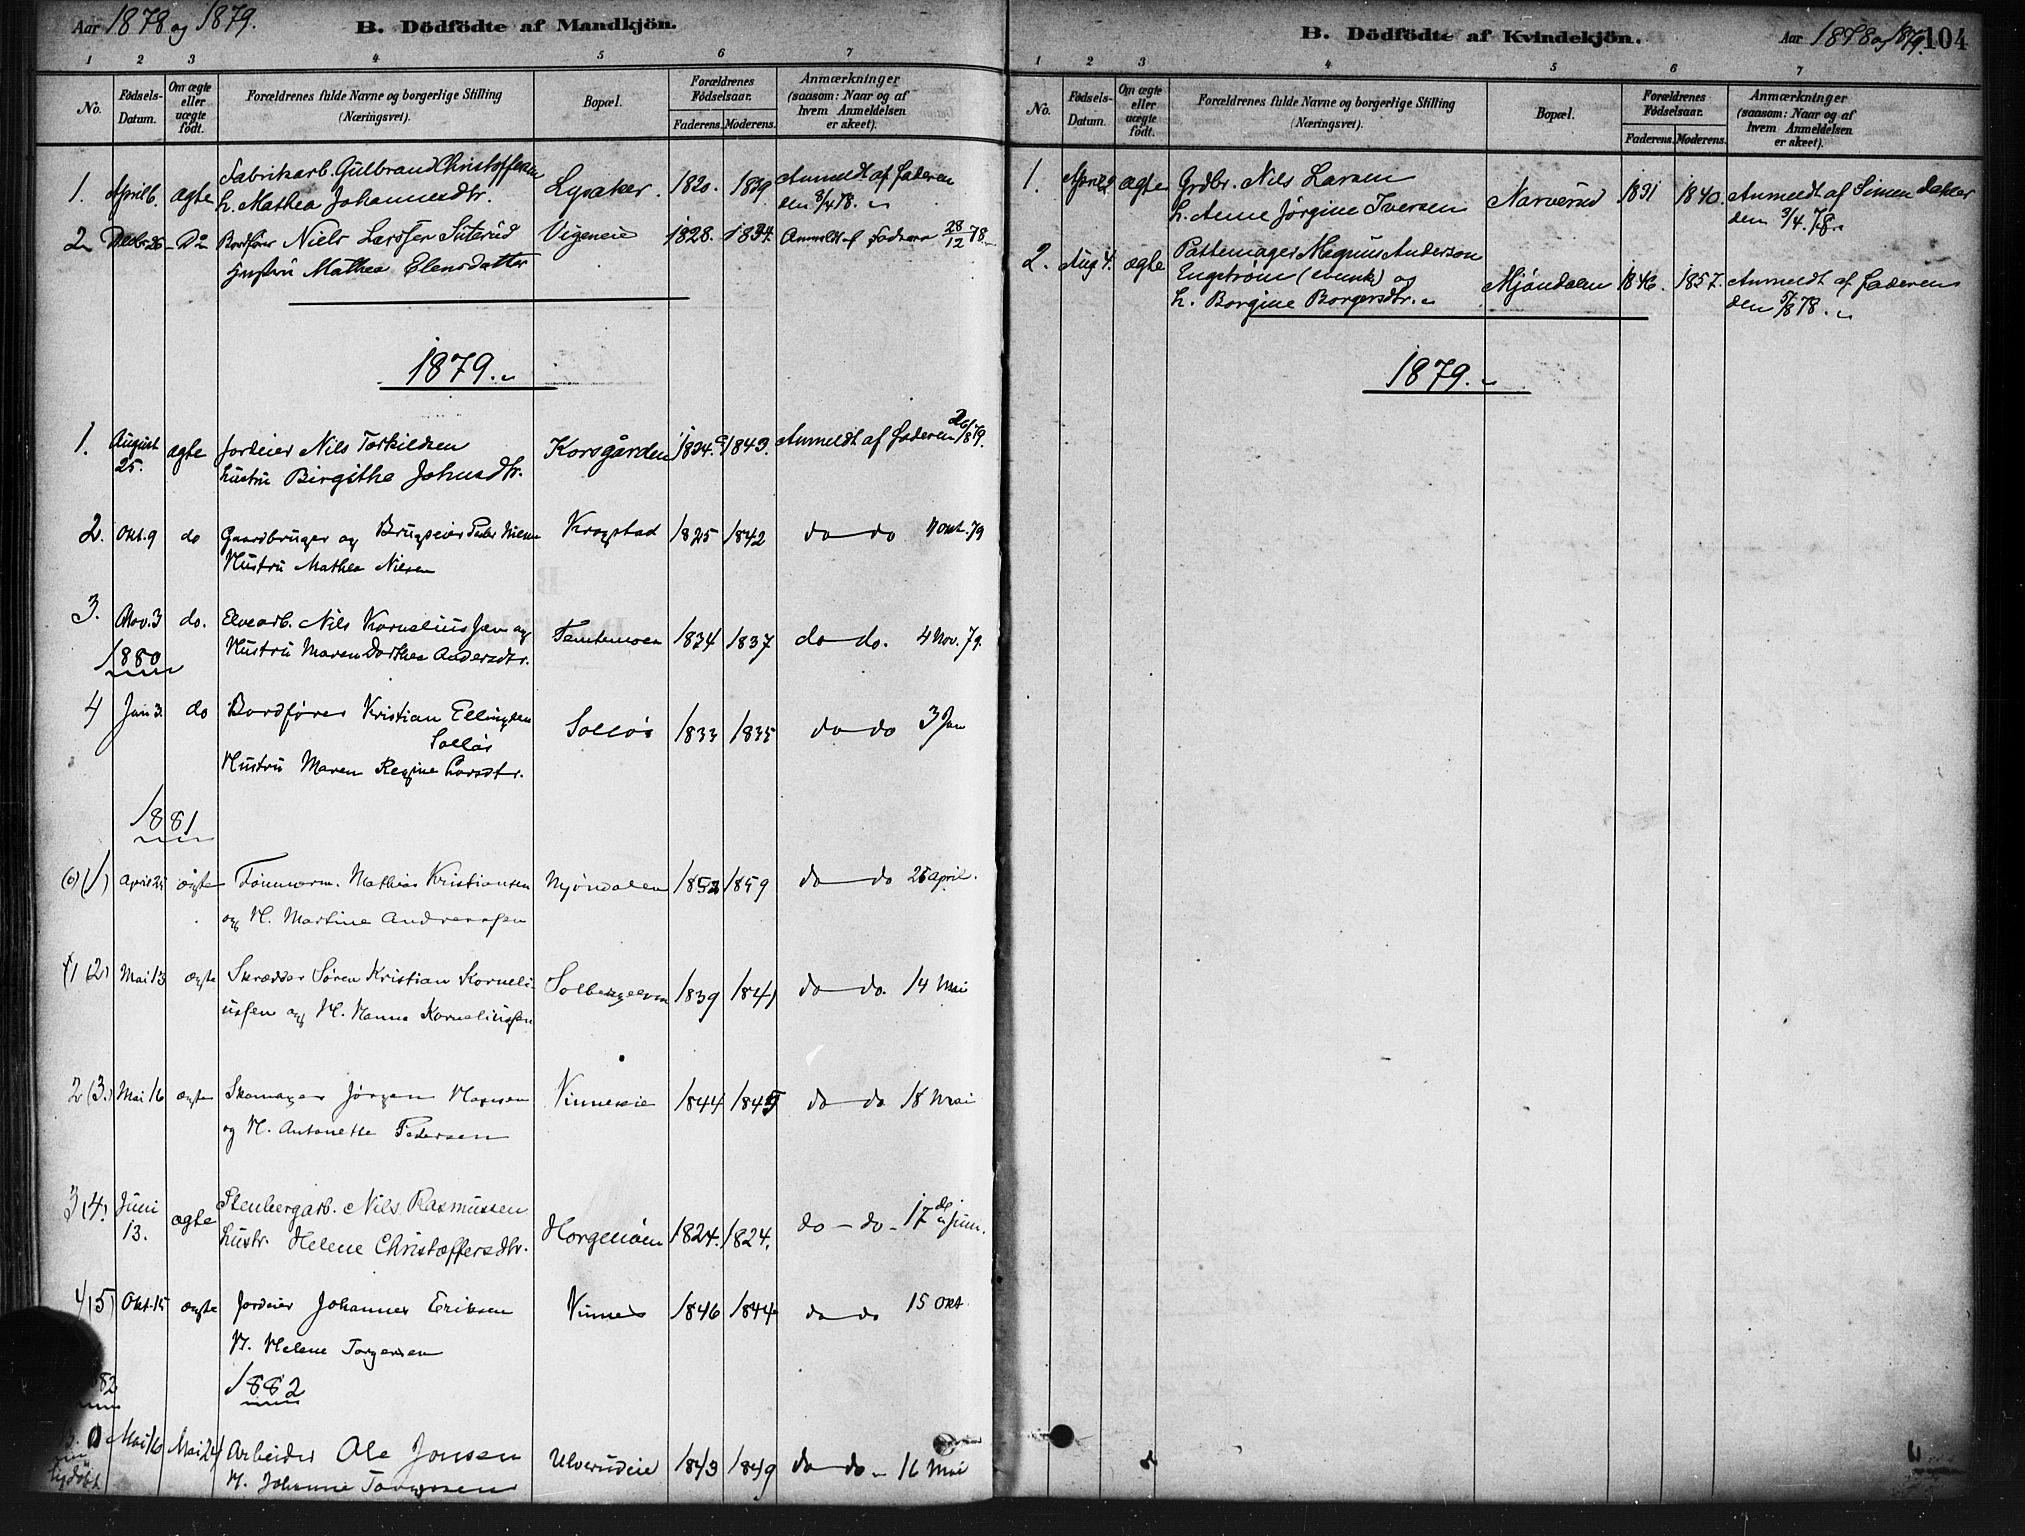 Aar 1878 og 1879. B. Dödfödte af Mandkjön.
1 2 3 4 5 6 7
No. Födsels-Datum. Om ægte eller uægte födt. Forældrenes fulde Navne og borgerlige Stilling (Næringsvei). Bopæl. Forældrenes Födselsaar. Faderens. Moderens. Anmærkninger (saasom: Naar og af hvem Anmeldelsen er skeet).
1. April 6. ægte Fabrikarb. Gulbrand Christoffersen Lysaker. 1820. 1839 Anmeldt af Faderen
h. Mathea Johannesdtr. den 8/4 78.
2 Decbr 26 Do Bordförer Niels Larssen Suterud Vigeneie 1828. 1834. Anmeldt af Faderen 28/12 78.
Hustru Mathea Elensdatter
1879.
1. August 25. ægte Jordeier Nils Torkildsen Korsgården 1834. 1843. Anmeldt af Faderen 26/8 79.
Hustru Birgithe Johnsdtr.
2. Okt. 9 do Gaardbruger og Brugseier Peder Nielsen Krogstad 1825 1842 do do 11 Okt. 79
Hustru Mathea Nilsen
3. Nov. 3 do. Elvearb. Nils Kornelius Jæn og Temtemoen 1834 1837 do do. 4 Nov. 79.
Hustru Maren Dorthea Andersdtr.
1880
4 Jan 3. do Bordförer Kristian Ellingsen Solløs 1833 1835 do do 3 Jan
Solløs
Hustru Maren Regine Larsdtr.
1881
(0) (1) April 25 ægte Tömmerm. Mathias Kristiansen Mjöndalen 1853 1859 do do 26 april.
og H. Martine Andreassen
(1 (2) Mai 13 ægte Skrædder Sören Kristian Korneli- Solbergelven 1839 1841 do do. 14 Mai
ussen og H. Hanna Korneliussen
2 (3.) Mai 16 ægte Skomager Jörgen Hansen Vinneseie 1844 1845 do do 18 Mai
og H. Antonette Pedersen
3 (4) Juni 13. ægte Stenbergarb. Nils Rasmussen Horgemoen 1824. 1824. do - do - 17de Juni.
Hustr. Helene Christoffersdtr.
4 (5) Okt. 15 ægte Jordeier Johannes Eriksen Vinnes 1846 1844 do do 15 Okt.
H. Helene Torgersen
1882
Mai 16 Mai 24 Arbeider Ole Jonsen Ulverudeie 1843 1849 do do - 16 Mai
H. Johanne Torgersen
B. Dödfödte af Kvindekjön. Aar 1878 og 1879. 104
1 2 3 4 5 6 7
No. Födsels-Datum. Om ægte eller uægte födt. Forældrenes fulde Navne og borgerlige Stilling (Næringsvei). Bopæl. Forældrenes Födselsaar. Faderens. Moderens. Anmærkninger (saasom: Naar og af hvem Anmeldelsen er skeet).
1. April ægte Grdbr. Nils Larsen Narverud 1831 1840. Anmeldt af Simen Dakker
h. Anne Jörgine Iversen den 3/4. 78.
2. Aug 4. ægte Pottemager Magnus Anderson
Engström (svensk) og Mjöndalen 1846. 1857. Anmeldt af Faderen
h. Borgine Borgersdtr. den 5/8 78.
1879.